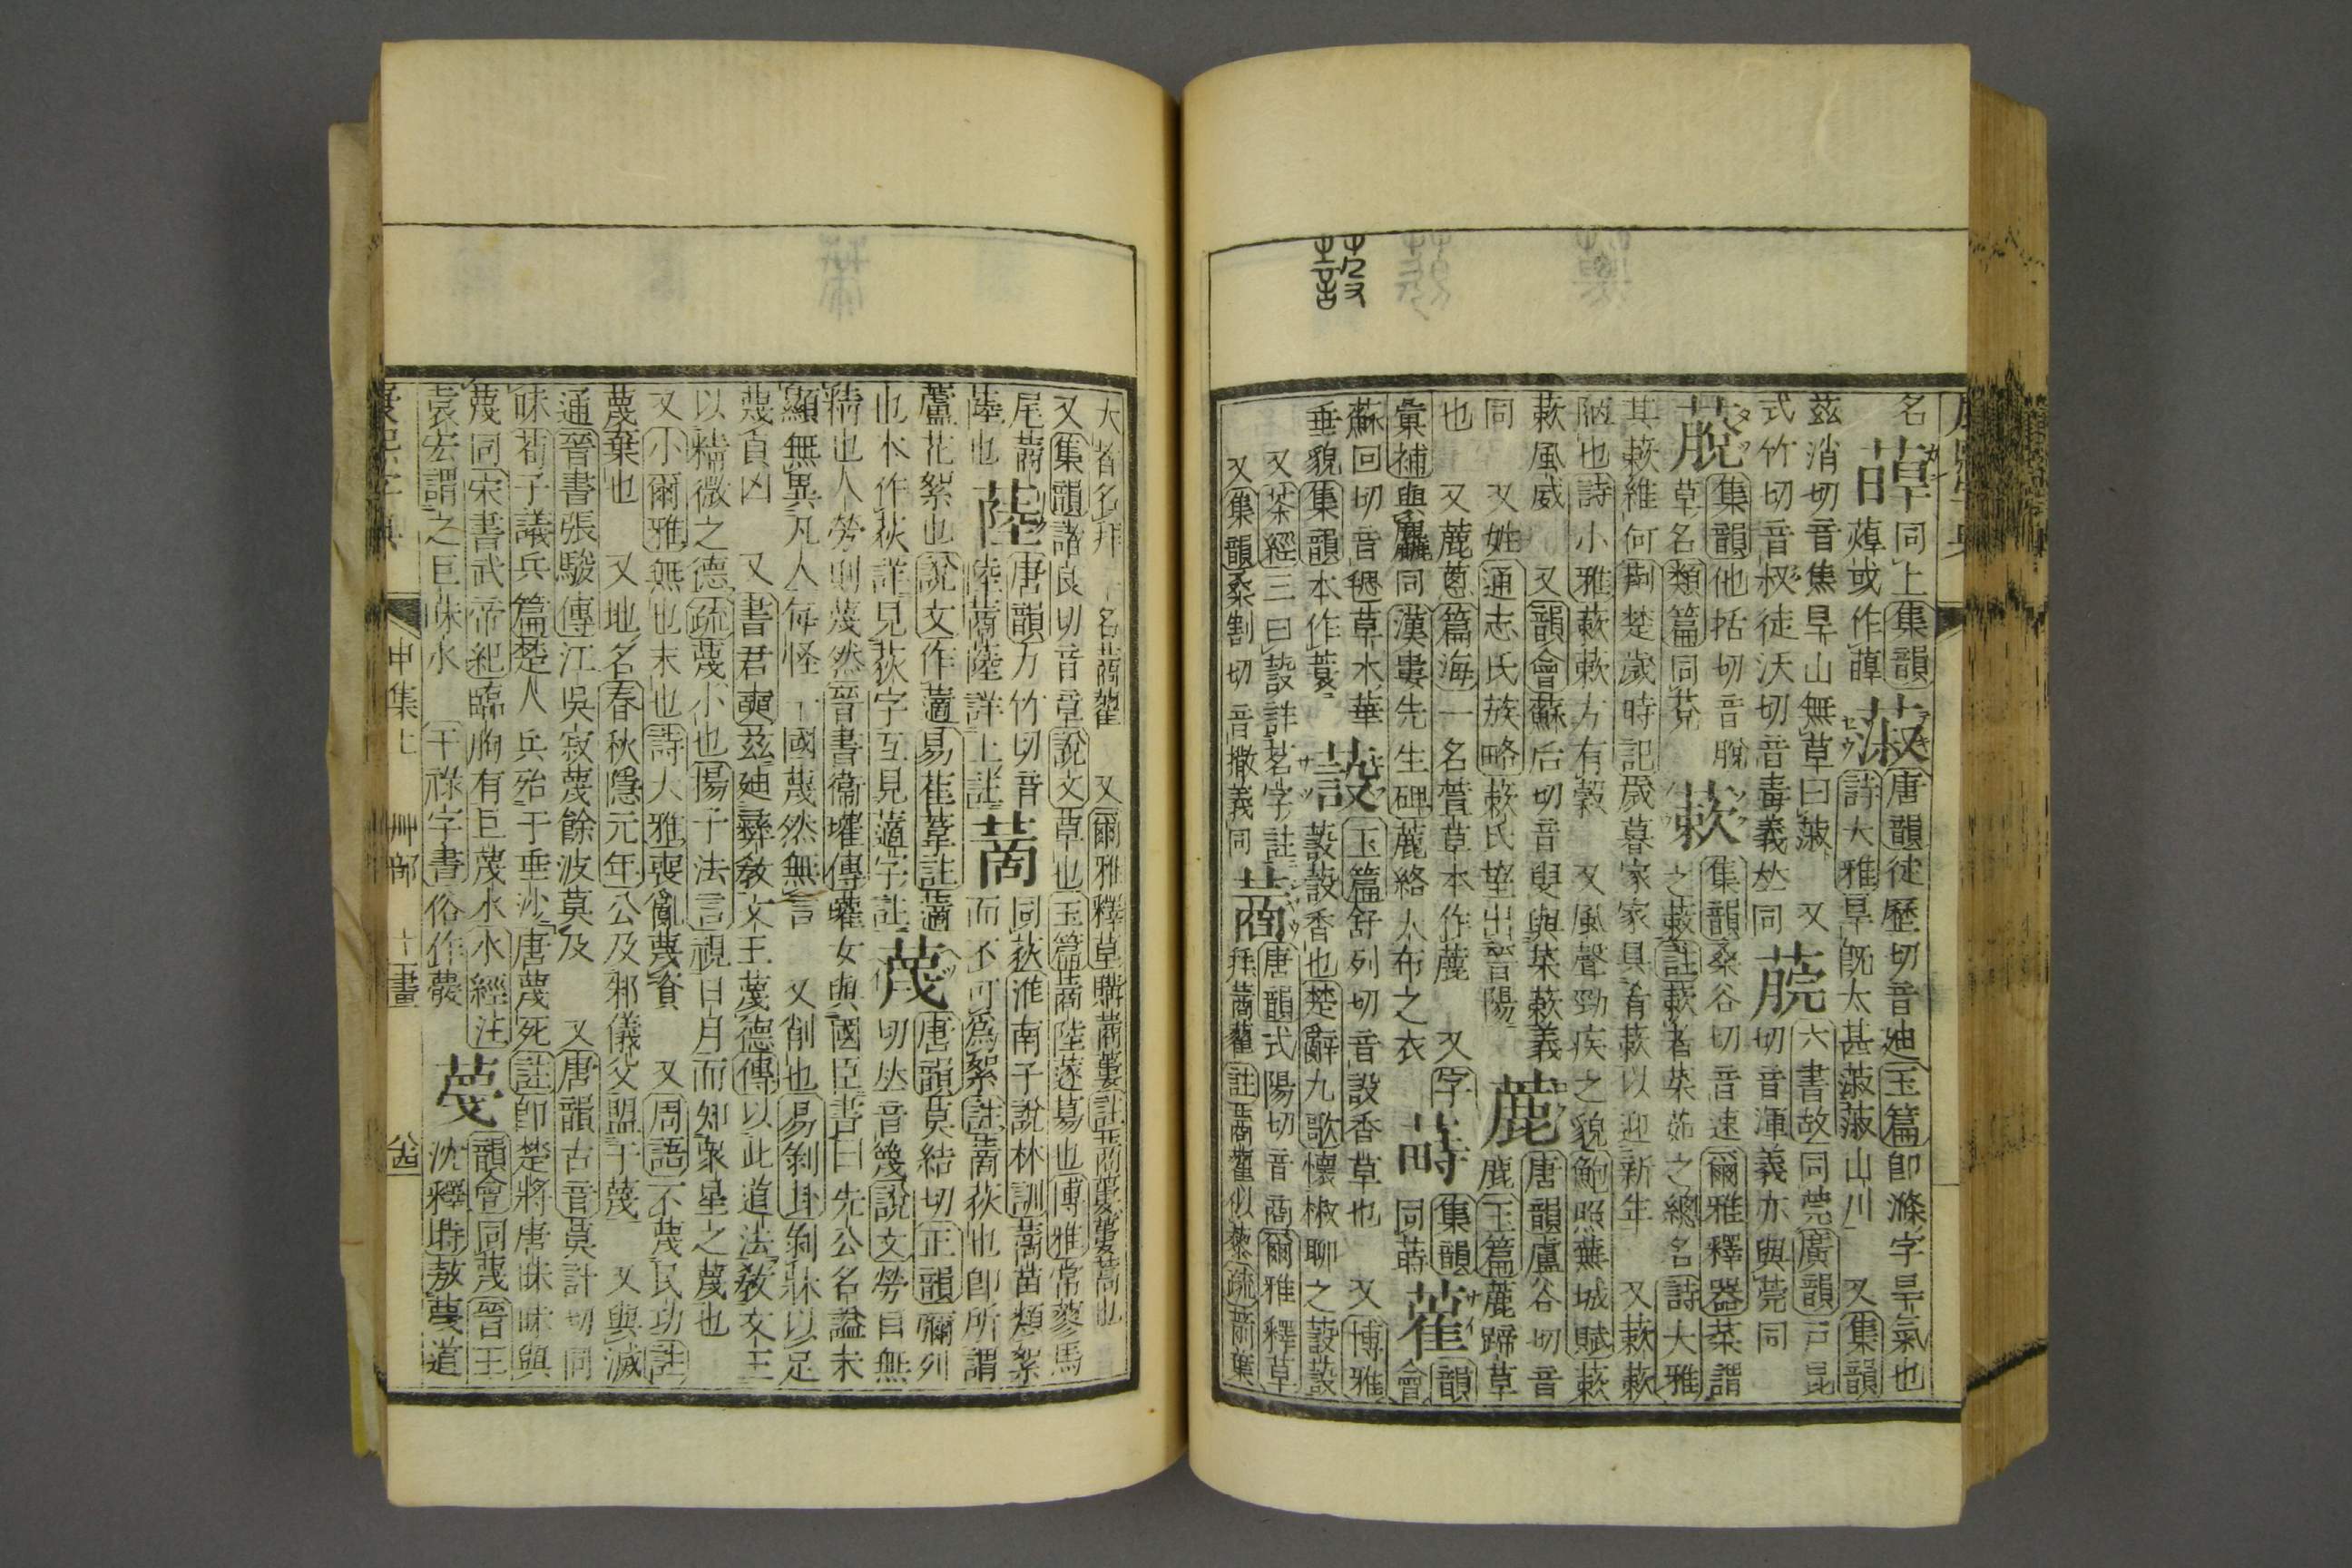 蔎
名 䔒 同上集韻 蔋 唐韻徒歷切音廸玉篇卽滌字旱氣也
藫或作䕭 詩大雅旱旣太甚蔋蔋山川 又集韻
茲消切音焦旱山無草曰蔋 又 六書故同莞廣韻戸昆
式竹切音叔徒沃切音毒義𠀤同 䓴 切音渾義亦與莞同
蓚 集韻他括切音脫 蔌 集韻桑谷切音速爾雅釋器菜謂
草名類篇同莌 之蔌註蔌者菜茹之總名詩大雅
其蔌維何荆楚歲時記歲暮家家具肴蔌以迎新年 又蔌蔌
陋也詩小雅蔌蔌方有穀 又風聲勁疾之貌鮑照蕪城賦蔌
蔌風威 又韻會蘇后切音叟與菜蔌義
同 又姓通志氏族略蔌氏望出晉陽 蔍 唐韻盧谷切音
也 又蔍蔥篇海一名萱草本作蔍 又字 鹿玉篇蔍蹄草
彙補與麤同漢婁先生碑蔍絡大布之衣 蒔 集韻
同蒔 蓷 韻會
蘇回切音毸草木華 蔎 玉篇舒列切音設香草也 又博雅
垂貌集韻本作蓑 蔎蔎香也楚辭九歌懷椒聊之蔎蔎
又茶經三曰蔎詳茗字註 蔏 唐韻式陽切音商爾雅釋草
又集韻桑割切 音撒義同 拜蔏藋註蔏藋似藜疏爾葉
大者名拜一名蔏藋 又爾雅釋草購蔏蔞註蔏蔞蔞蒿也
又集韻諸良切音章說文草也玉篇蔏陸蓫葍也博雅常蓼馬
尾蔏 蔯 唐韻力竹切音 同荻淮南子說林訓蔐苗類絮
陸也 陸蔏蔯詳上註 蔐 而不可爲絮註蔐荻也卽所謂
蘆花絮也說文作藡易萑葦註藡 蔑 唐韻莫結切正韻彌列
也本作荻詳見荻字互見藡字註 切𠀤音篾說文勞目無
精也人勞則蔑然晉書衞瓘傳瓘女與國臣書曰先公名謚未
顯無異凡人每怪一國蔑然無言 又削也易剝卦剝牀以足
蔑貞凶 又書君奭茲廸彝敎文王蔑德傳以此道法敎文王
以精微之德疏蔑小也陽子法言視日月而知衆星之蔑也
又小爾雅無也末也詩大雅喪亂蔑資 又周語不蔑民功註
蔑棄也 又地名春秋隱元年公及邾儀父盟于蔑 又與滅
通晉書張駿傳江吳寂蔑餘波莫及 又唐韻古音莫計切同
昧荀子議兵篇楚人兵殆于垂沙唐蔑死註卽楚將唐昧昧與
蔑同宋書武帝紀臨朐有巨蔑水水經注 𦿕 韻會同蔑晉王
袁宏謂之巨昧水 干祿字書俗作䕾 沈釋時敖蔑道
康熙字典 申集上 艸部 十一畫